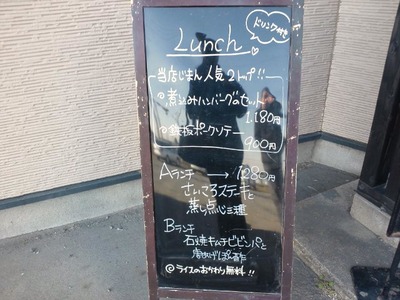 Lunch
ドリンク付き
当店じまん人気2トップ!!
◎煮込みハンバーグのセット
1,180円
◎鉄板ポークソテー
900円
Aランチ → 1280円
さいころステーキと
蒸し点心三種
Bランチ
石焼キムチビビンバと
唐あげぽん酢
◎ライスのおかわり無料!!